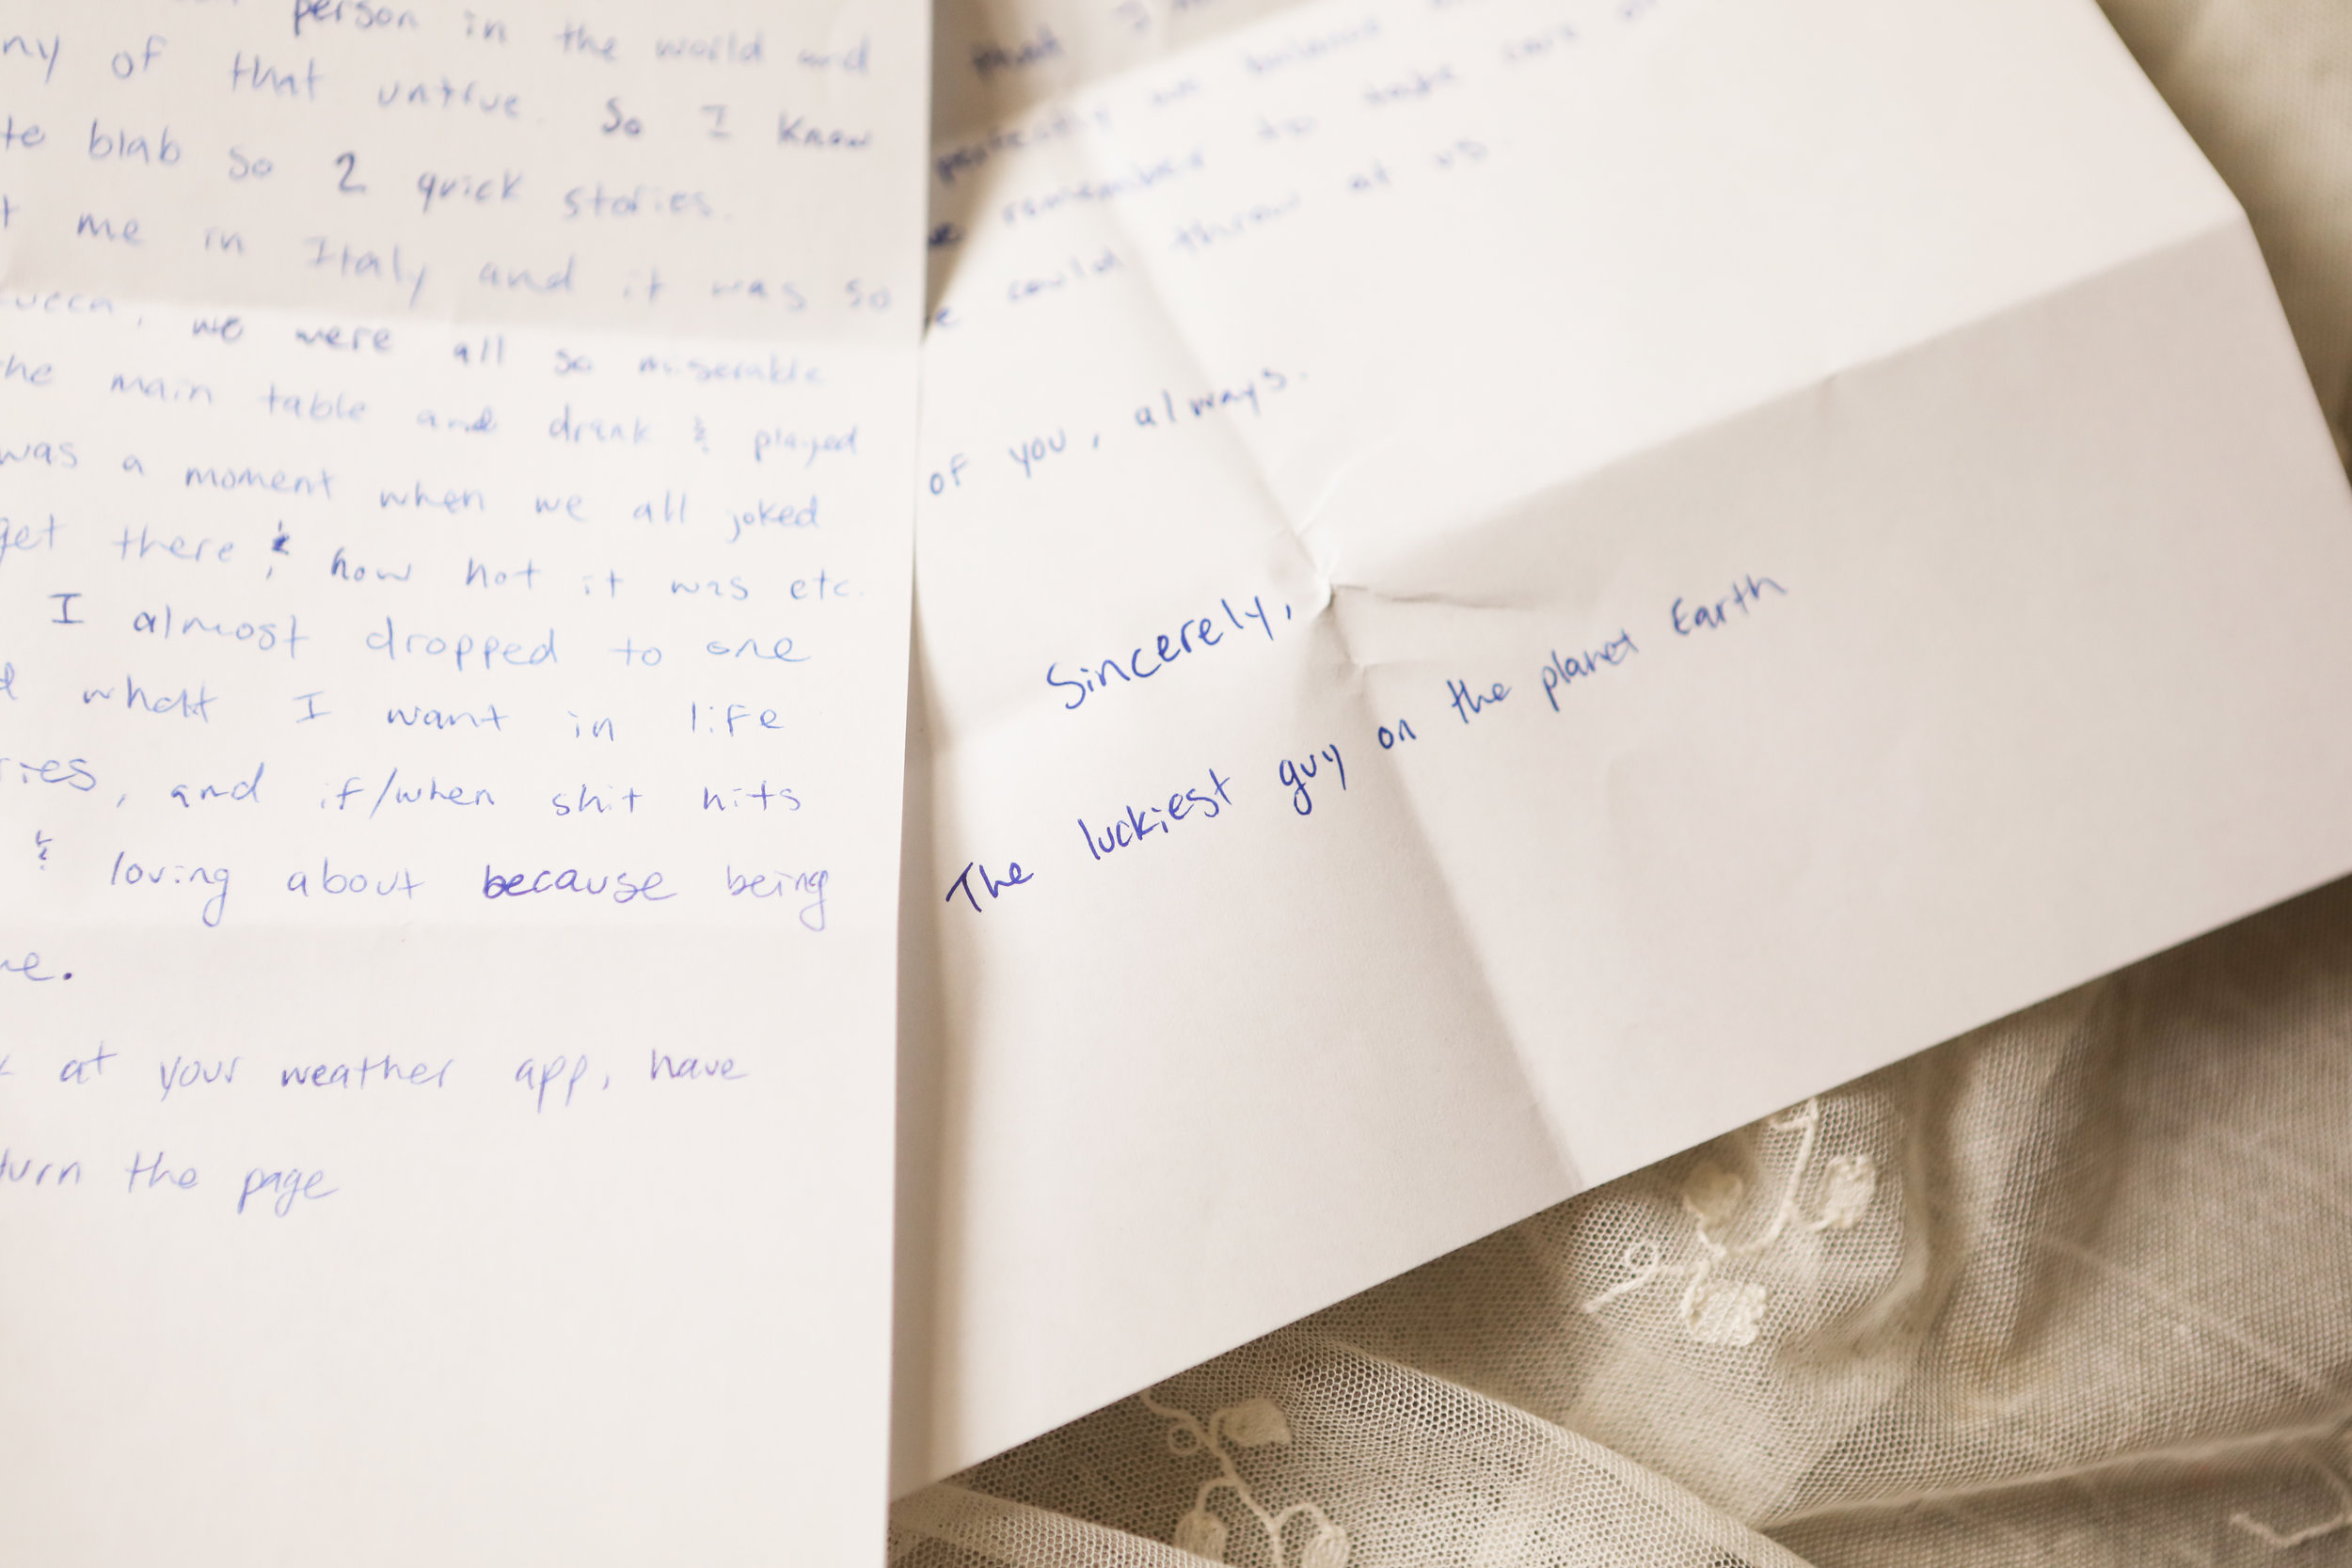 person in the world and
ny of that untrue. So I know
te blab so 2 quick stories.
t me in Italy and it was so
ucca, we were all so miserable
he main table and drank & played
was a moment when we all joked
get there & how hot it was etc.
I almost dropped to one
d whatt I want in life
ries, and if/when shit hits
& loving about because being
ne.
k at your weather app, have
turn the page
that I
on balance
remember to take care of
e could throw at us.
of you, always.
Sincerely,
The luckiest guy on the planet Earth